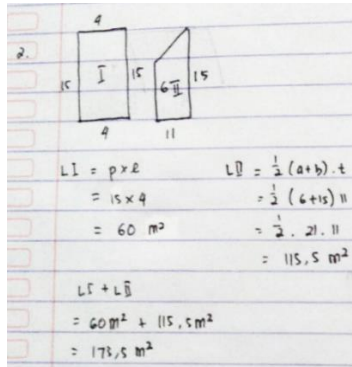 2.
4
15 I 15
4
6 II 15
11
LI = p x l
= 15 x 4
= 60 m²
LII = 1/2 (a+b) . t
= 1/2 (6+15) 11
= 1/2 . 21 . 11
= 115,5 m²
LI + LII
= 60 m² + 115,5 m²
= 173,5 m²